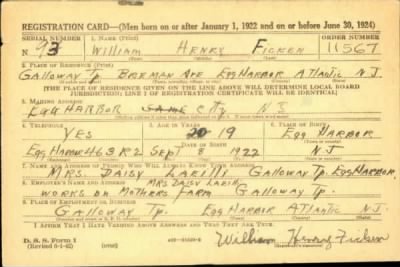 REGISTRATION CARD—(Men born on or after January 1, 1922 and on or before June 30, 1924)
SERIAL NUMBER 1. NAME (Print) ORDER NUMBER
N 73 WILLIAM HENRY FICKEN 11567
2. PLACE OF RESIDENCE (Print)
GALLOWAY TP. BREMAN AVE EGG HARBOR ATLANTIC N.J.
[THE PLACE OF RESIDENCE GIVEN ON THE LINE ABOVE WILL DETERMINE LOCAL BOARD
JURISDICTION; LINE 2 OF REGISTRATION CERTIFICATE WILL BE IDENTICAL]
3. MAILING ADDRESS
EGG HARBOR CITY N J
4. TELEPHONE 5. AGE IN YEARS 6. PLACE OF BIRTH
YES 20 19 EGG HARBOR
DATE OF BIRTH
EGG HARBOR 463R2 SEPT 8 1922 N.J.
7. NAME AND ADDRESS OF PERSON WHO WILL ALWAYS KNOW YOUR ADDRESS
MRS. DAISY GALLOWAY TP. EGG HARBOR
8. EMPLOYER'S NAME AND ADDRESS MRS DAISY
WORKS ON MOTHERS FARM GALLOWAY TP.
9. PLACE OF EMPLOYMENT OR BUSINESS
GALLOWAY TP. EGG HARBOR ATLANTIC N.J.
I AFFIRM THAT I HAVE VERIFIED ABOVE ANSWERS AND THAT THEY ARE TRUE.
D. S. S. Form 1
William Henry Ficken